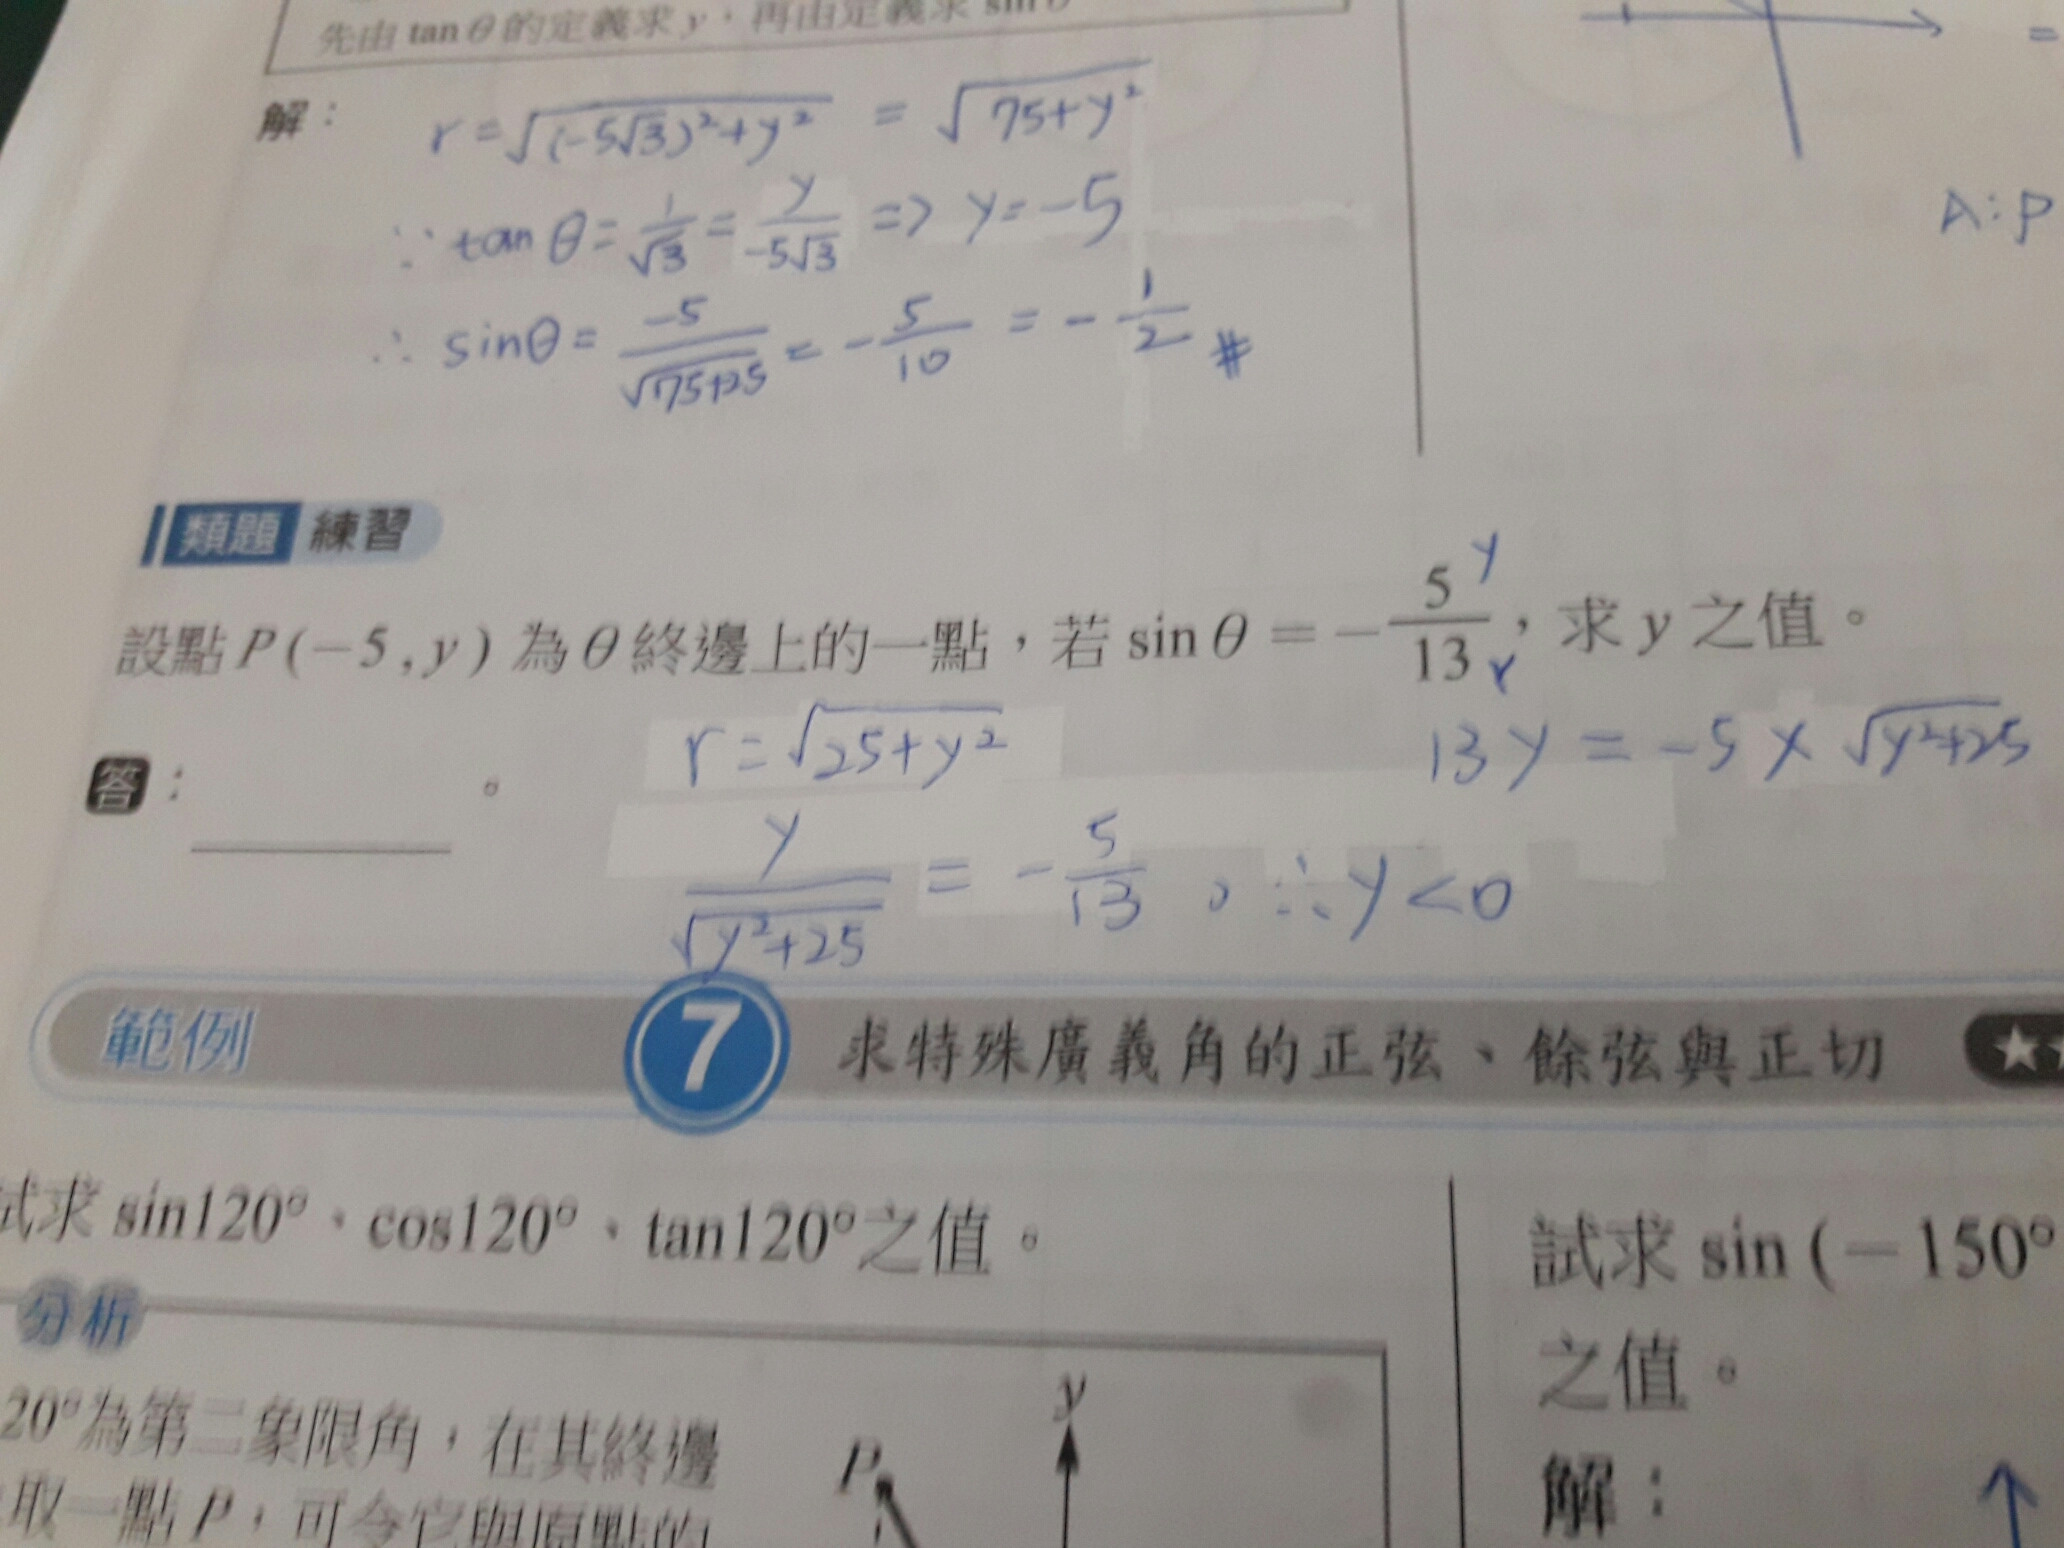 先由 tan θ 的定義求 y，再由定義求 sin θ
解：
r = √((-5√3)² + y²) = √(75 + y²)
∵ tan θ = 1/√3 = y/(-5√3) => y = -5
∴ sin θ = -5/√(75+25) = -5/10 = -1/2 #
A: P
類題 練習
設點 P(−5, y) 為 θ 終邊上的一點，若 sin θ = −5/13，求 y 之值。
y
r
答：＿＿＿。
r = √(25 + y²)
13y = -5 × √(y²+25)
y/√(y²+25) = -5/13，∴ y < 0
範例 7 求特殊廣義角的正弦、餘弦與正切 ★
試求 sin120°、cos120°、tan120° 之值。
分析
20° 為第二象限角，在其終邊
取一點 P，可令它與原點的
y
P
試求 sin (−150°
之值。
解：